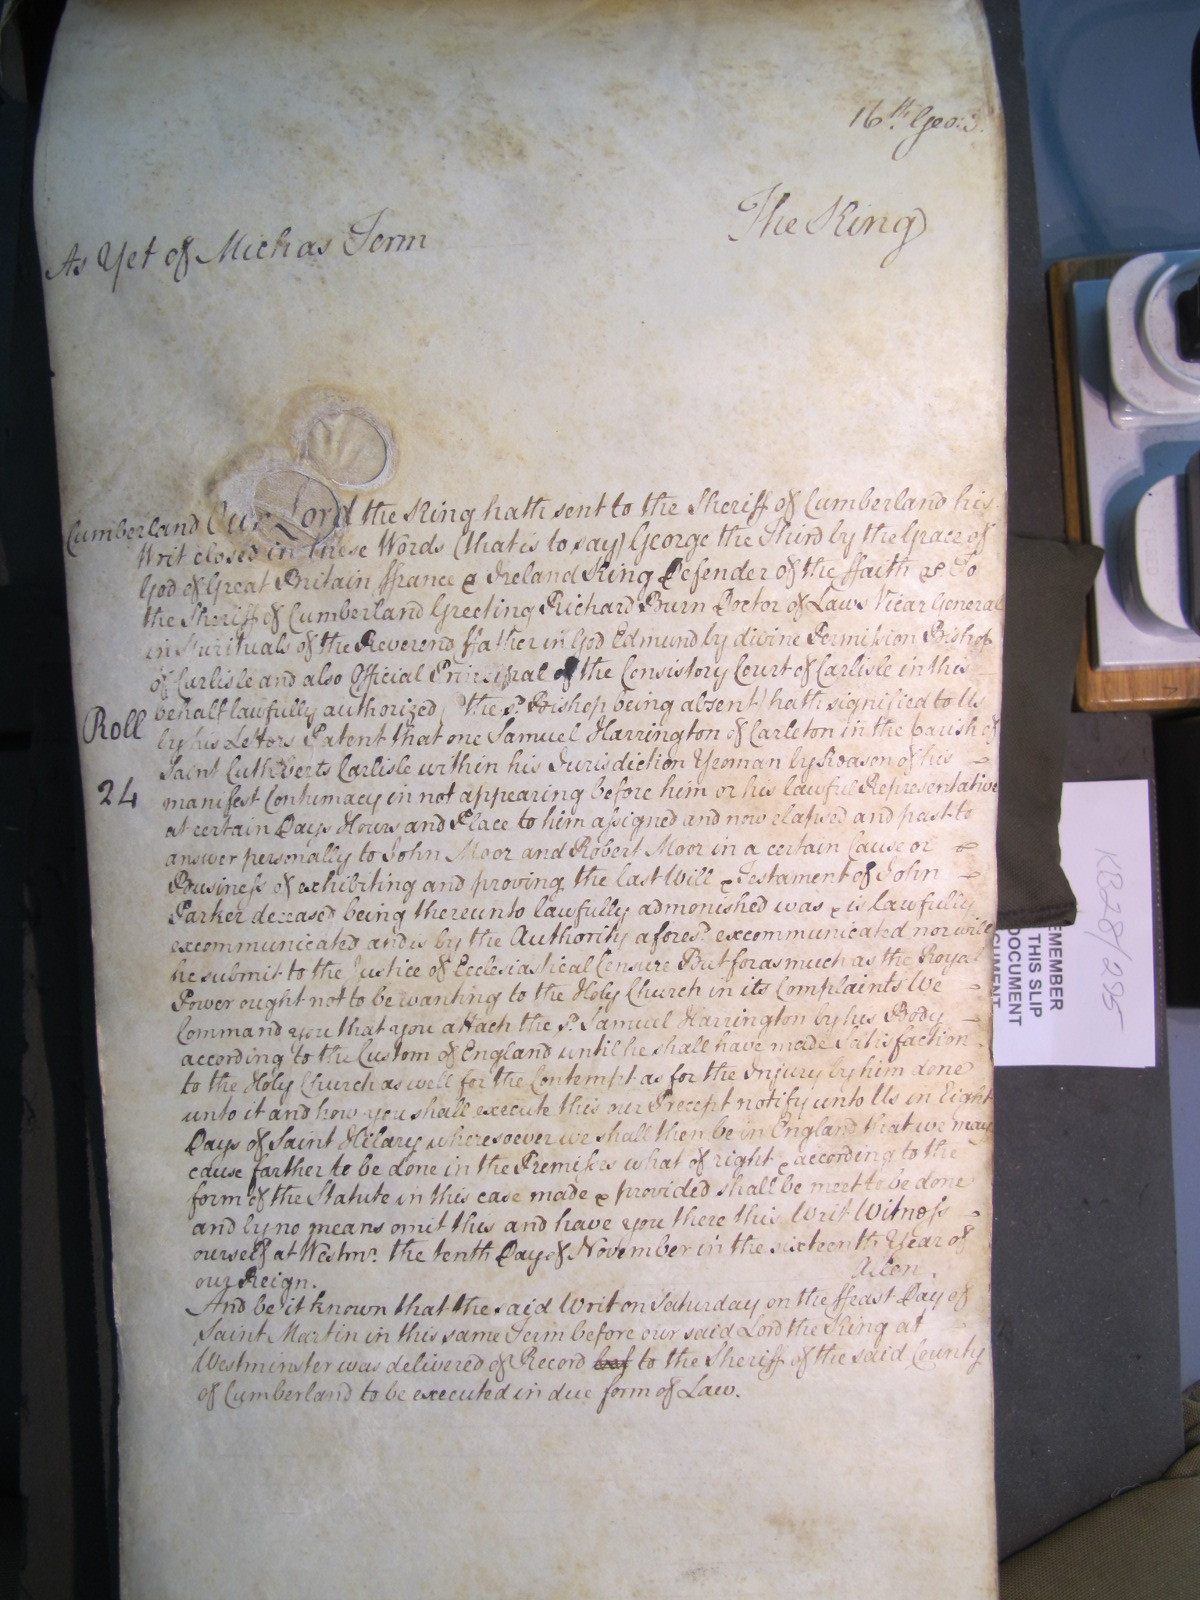 16th. Geo: 3.
The King
As Yet of Michas Term
Cumberland Our Lord the King hath sent to the Sheriff of Cumberland his
Writ closed in these Words (that is to say) George the Third by the Grace of
God of Great Britain ffrance & Ireland King Defender of the ffaith &c To
the Sheriff of Cumberland Greeting Richard Burn Doctor of Laws Vicar General
in Spirituals of the Reverend ffather in God Edmund by divine Permission Bishop
of Carlisle and also Official Principal of the Consistory Court of Carlisle in this
behalf lawfully authorized (the sd. Bishop being absent) hath signified to Us
by his Letters Patent that one Samuel Harrington of Carleton in the parish of
Roll
Saint Cuthberts Carlisle within his Jurisdiction Yeoman by Reason of his
24
manifest Contumacy in not appearing before him or his lawful Representative
at certain Days Hours and Place to him assigned and now elapsed and past to
answer personally to John Moor and Robert Moor in a certain Cause or
Business of exhibiting and proving the last Will & Testament of John
Parker deceased being thereunto lawfully admonished was & is lawfully
excommunicated and is by the Authority aforesd. excommunicated nor will
he submit to the Justice of Ecclesiastical Censure But forasmuch as the Royal
Power ought not to be wanting to the Holy Church in its Complaints We
Command you that you attach the sd. Samuel Harrington by his Body
according to the Custom of England until he shall have made Satisfaction
to the Holy Church as well for the Contempt as for the Injury by him done
unto it and how you shall execute this our Precept notify unto Us in Eight
Days of Saint Hilary wheresoever we shall then be in England that we may
cause farther to be done in the Premises what of right & according to the
form of the Statute in this case made & provided shall be meet to be done
and by no means omit this and have you there this Writ Witness
ourself at Westmr. the tenth Day of November in the sixteenth Year of
our Reign.
And be it known that the said Writ on Saturday on the ffeast Day of
Saint Martin in this same Term before our said Lord the King at
Westminster was delivered of Record to the Sheriff of the said County
of Cumberland to be executed in due form of Law.
KB28/295
REMEMBER
THIS SLIP
DOCUMENT